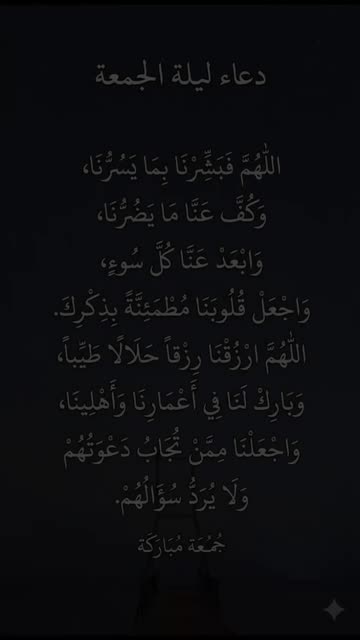 دعاء ليلة الجمعة
اللَّهُمَّ فَبَشِّرْنَا بِمَا يَسُرُّنَا،
وَكُفَّ عَنَّا مَا يَضُرُّنَا،
وَابْعَدْ عَنَّا كُلَّ سُوءٍ،
وَاجْعَلْ قُلُوبَنَا مُطْمَئِنَّةً بِذِكْرِكَ.
اللَّهُمَّ ارْزُقْنَا رِزْقاً حَلَالًا طَيِّباً،
وَبَارِكْ لَنَا فِي أَعْمَارِنَا وَأَهْلِينَا،
وَاجْعَلْنَا مِمَّنْ تُجَابُ دَعْوَتُهُمْ
وَلَا يُرَدُّ سُؤَالُهُمْ.
جُمُعَة مُبَارَكَة